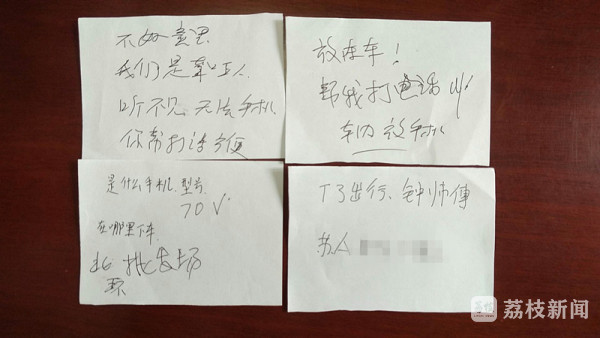 不好意思
我们是聋哑人
听不见、无法手机
你帮打请方便
放在车！
帮我打电话
车内 放手机
是什么手机、型号
70 V
在哪里下车
北 批发场
环
T3出行、钟师傅
苏A
荔枝新闻